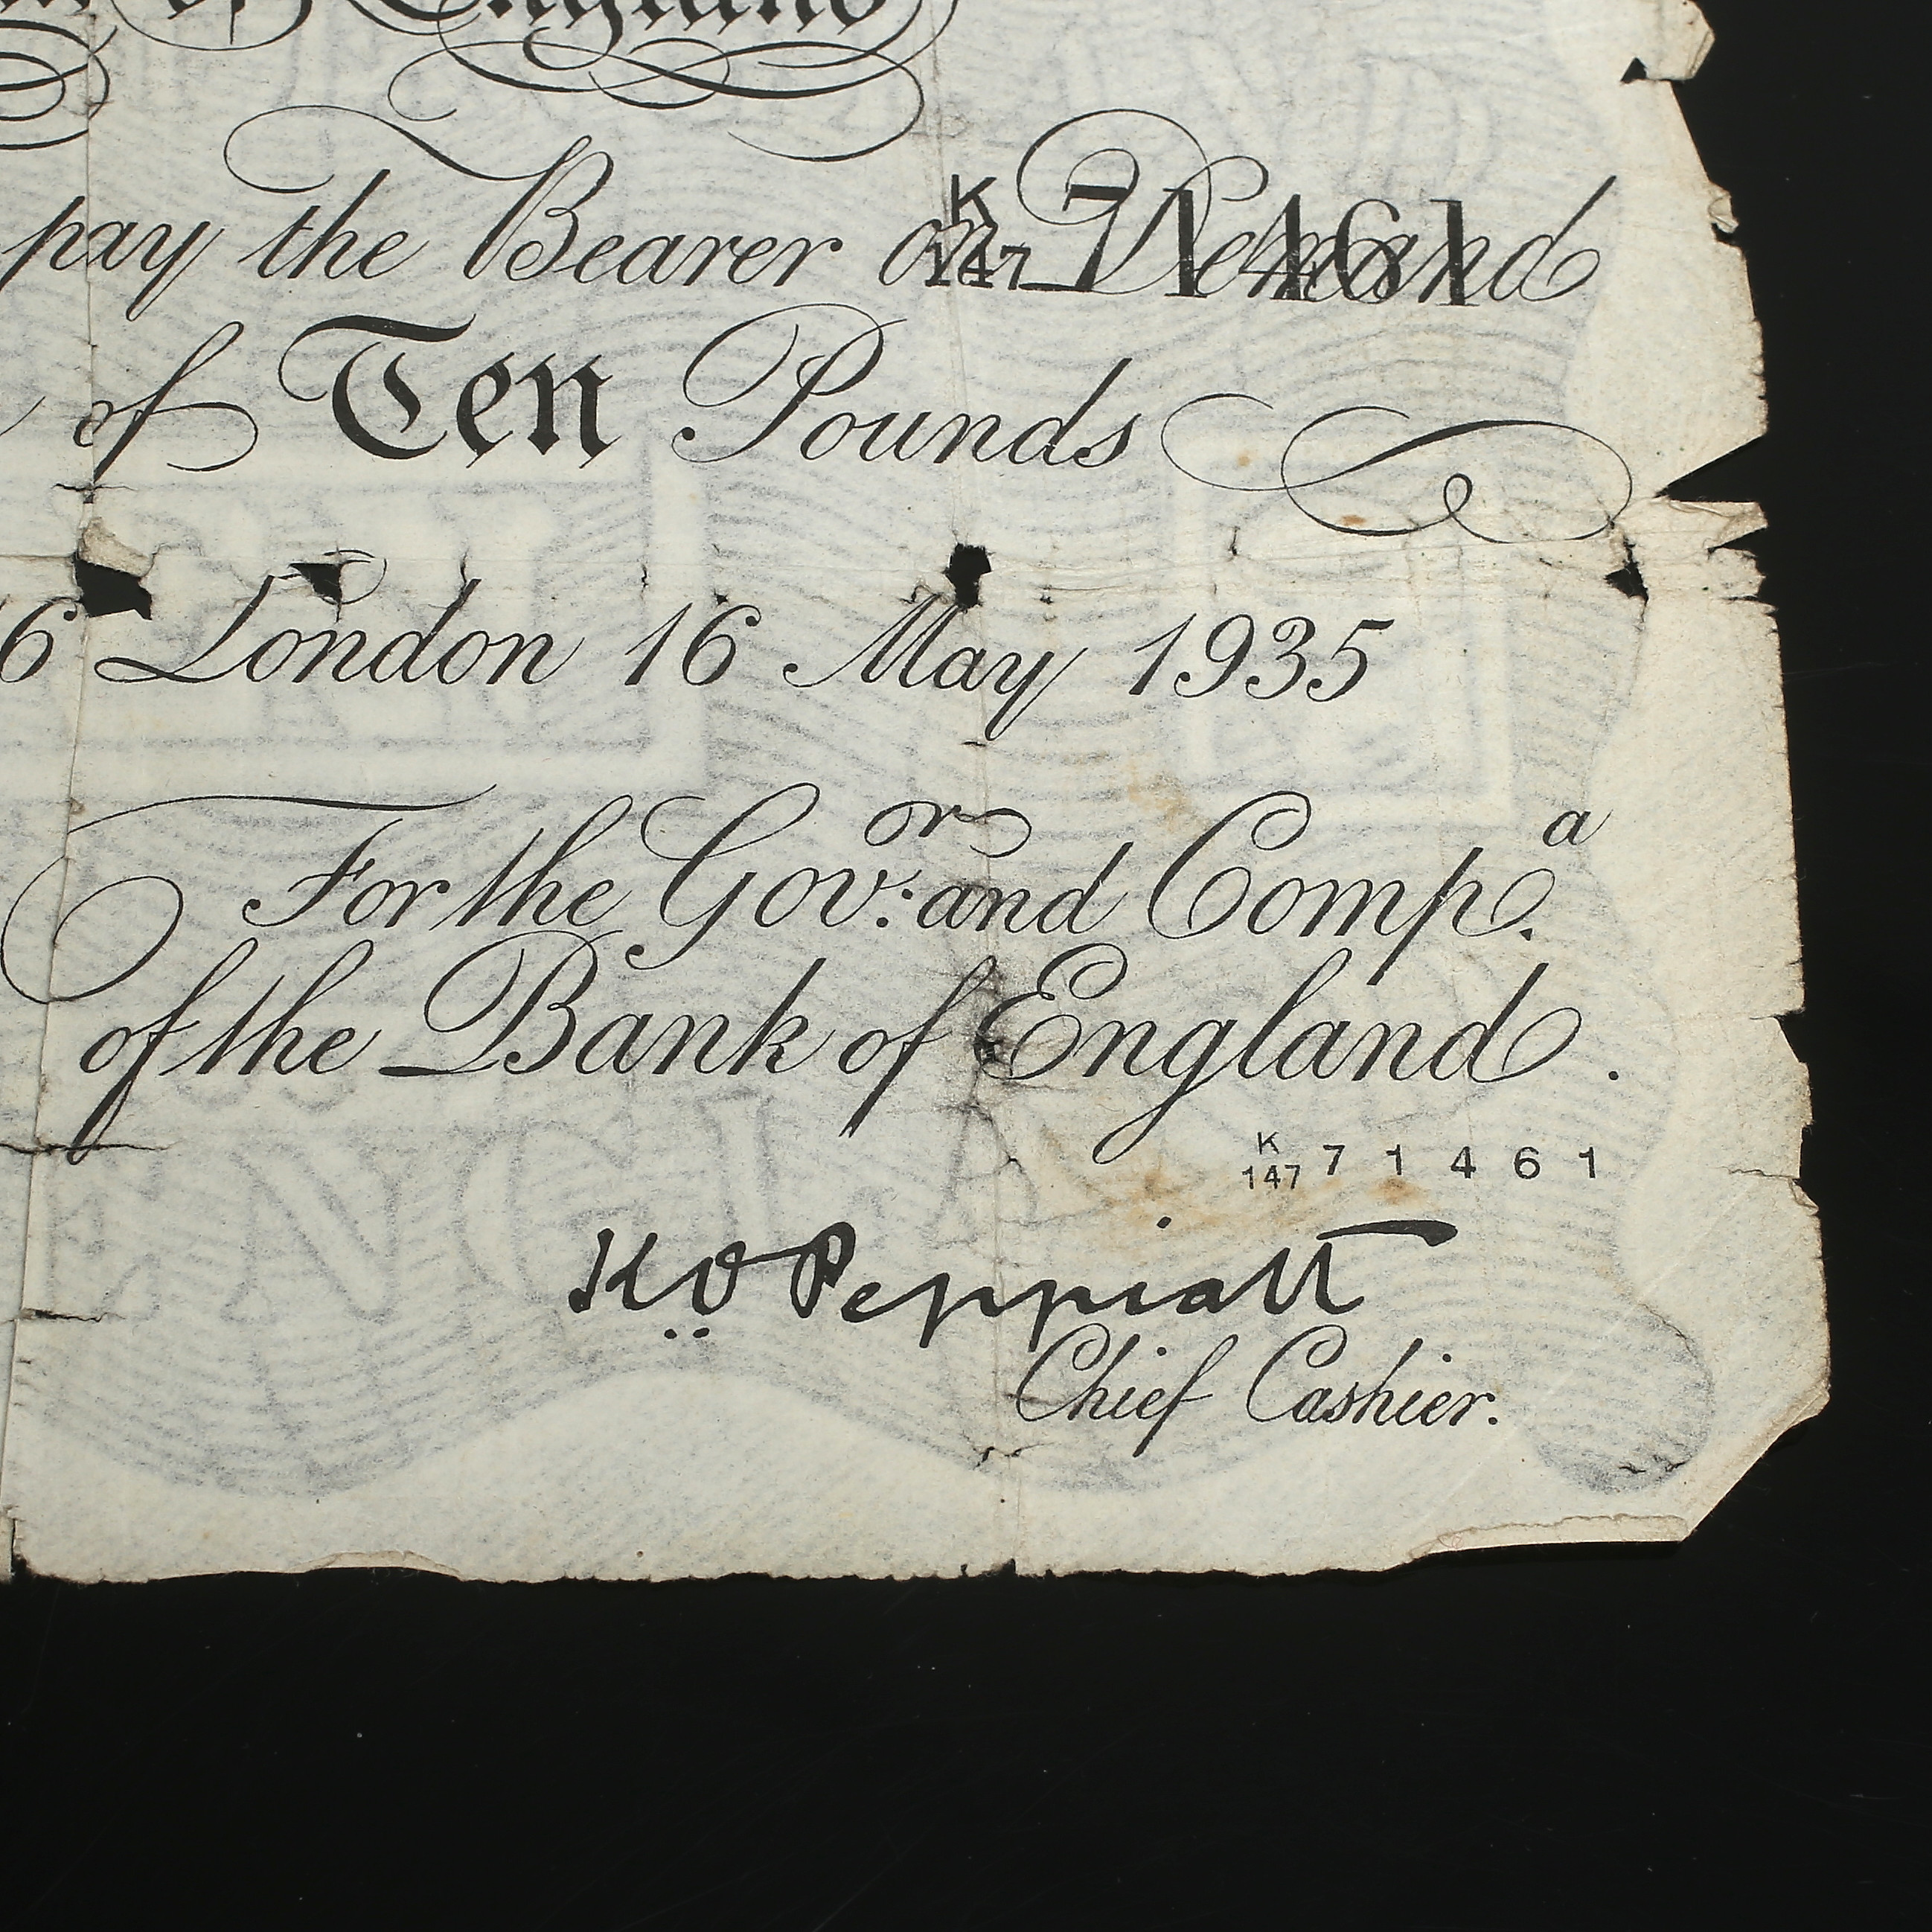 of England
pay the Bearer on Demand
K
147 71461
of Ten Pounds
6 London 16 May 1935
For the Gov:or and Comp.a
of the Bank of England.
K
147 7 1 4 6 1
K O Peppiatt
Chief Cashier.
ENGLA